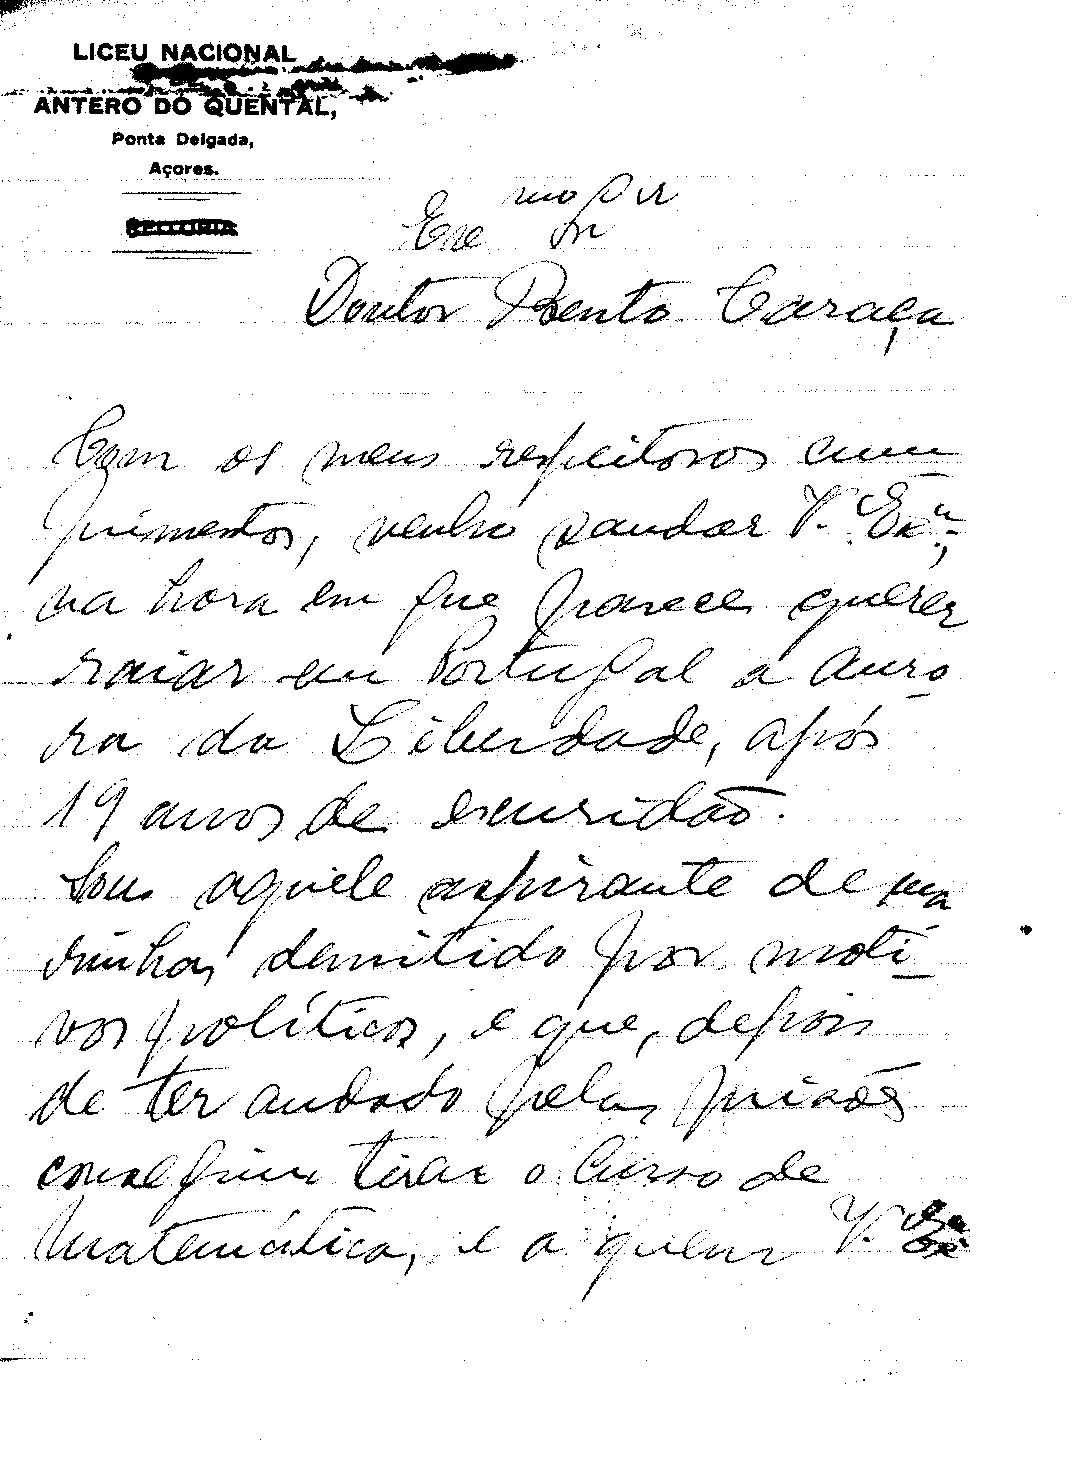 LICEU NACIONAL
ANTERO DO QUENTAL,
Ponta Delgada,
Açores.
Exmo Sr
Doutor Bento Caraça
Com os meus respeitosos cum
primentos, venho saudar V. Exa,
na hora em que parece querer
raiar em Portugal a auro
ra da Liberdade, após
19 anos de escuridão.
Sou aquele aspirante de ma
rinha, demitido por moti
vos políticos, e que, depois
de ter andado pelas prisões
conseguiu tirar o Curso de
Matemática, e a quem V. Exa